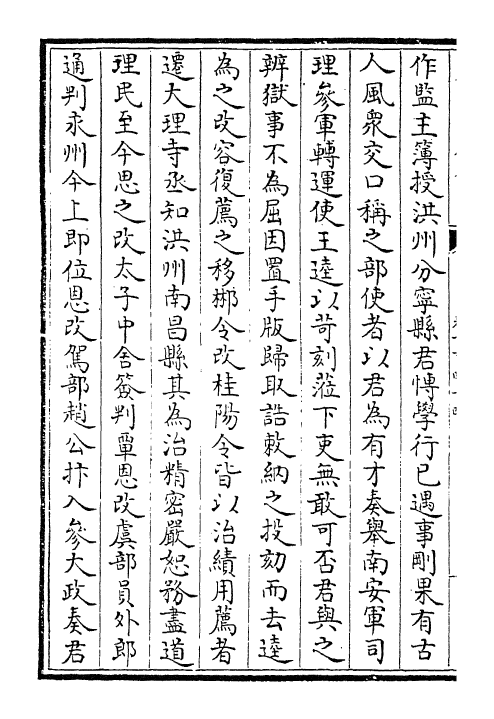 作監主簿授洪州分寧縣君愽學行已遇事剛果有古
人風衆交口稱之部使者以君為有才奏舉南安軍司
理參軍轉運使王逵以苛刻蒞下吏無敢可否君與之
辨獄事不為屈因置手版歸取誥敕納之投劾而去逵
為之改容復薦之移郴令改桂陽令皆以治績用薦者
遷大理寺丞知洪州南昌縣其為治精密嚴恕務盡道
理民至今思之改太子中舍簽判覃恩改虞部員外郎
通判永州今上即位恩改駕部趙公抃入參大政奏君